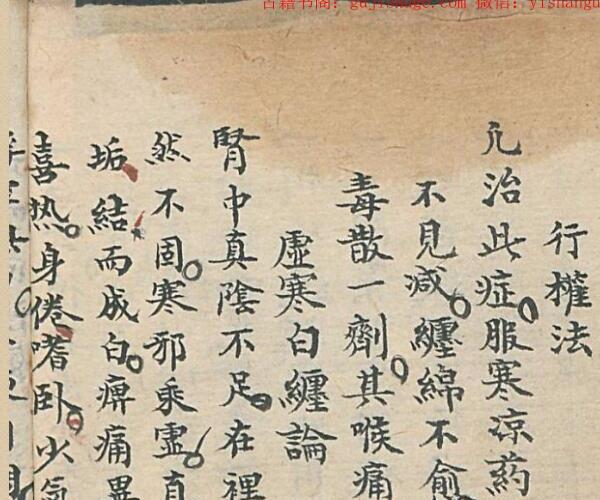 古籍书阁：gujishuge.com 微信：yishangu
行權法
凢治此症。服寒凉药
不見减。纏綿不愈
毒散一劑。其喉痛
虛寒白纏論
腎中真陰不足。在裡
然不固。寒邪乘虛直
垢結而成白。痹痛異
喜热。身倦嗜卧。少氣